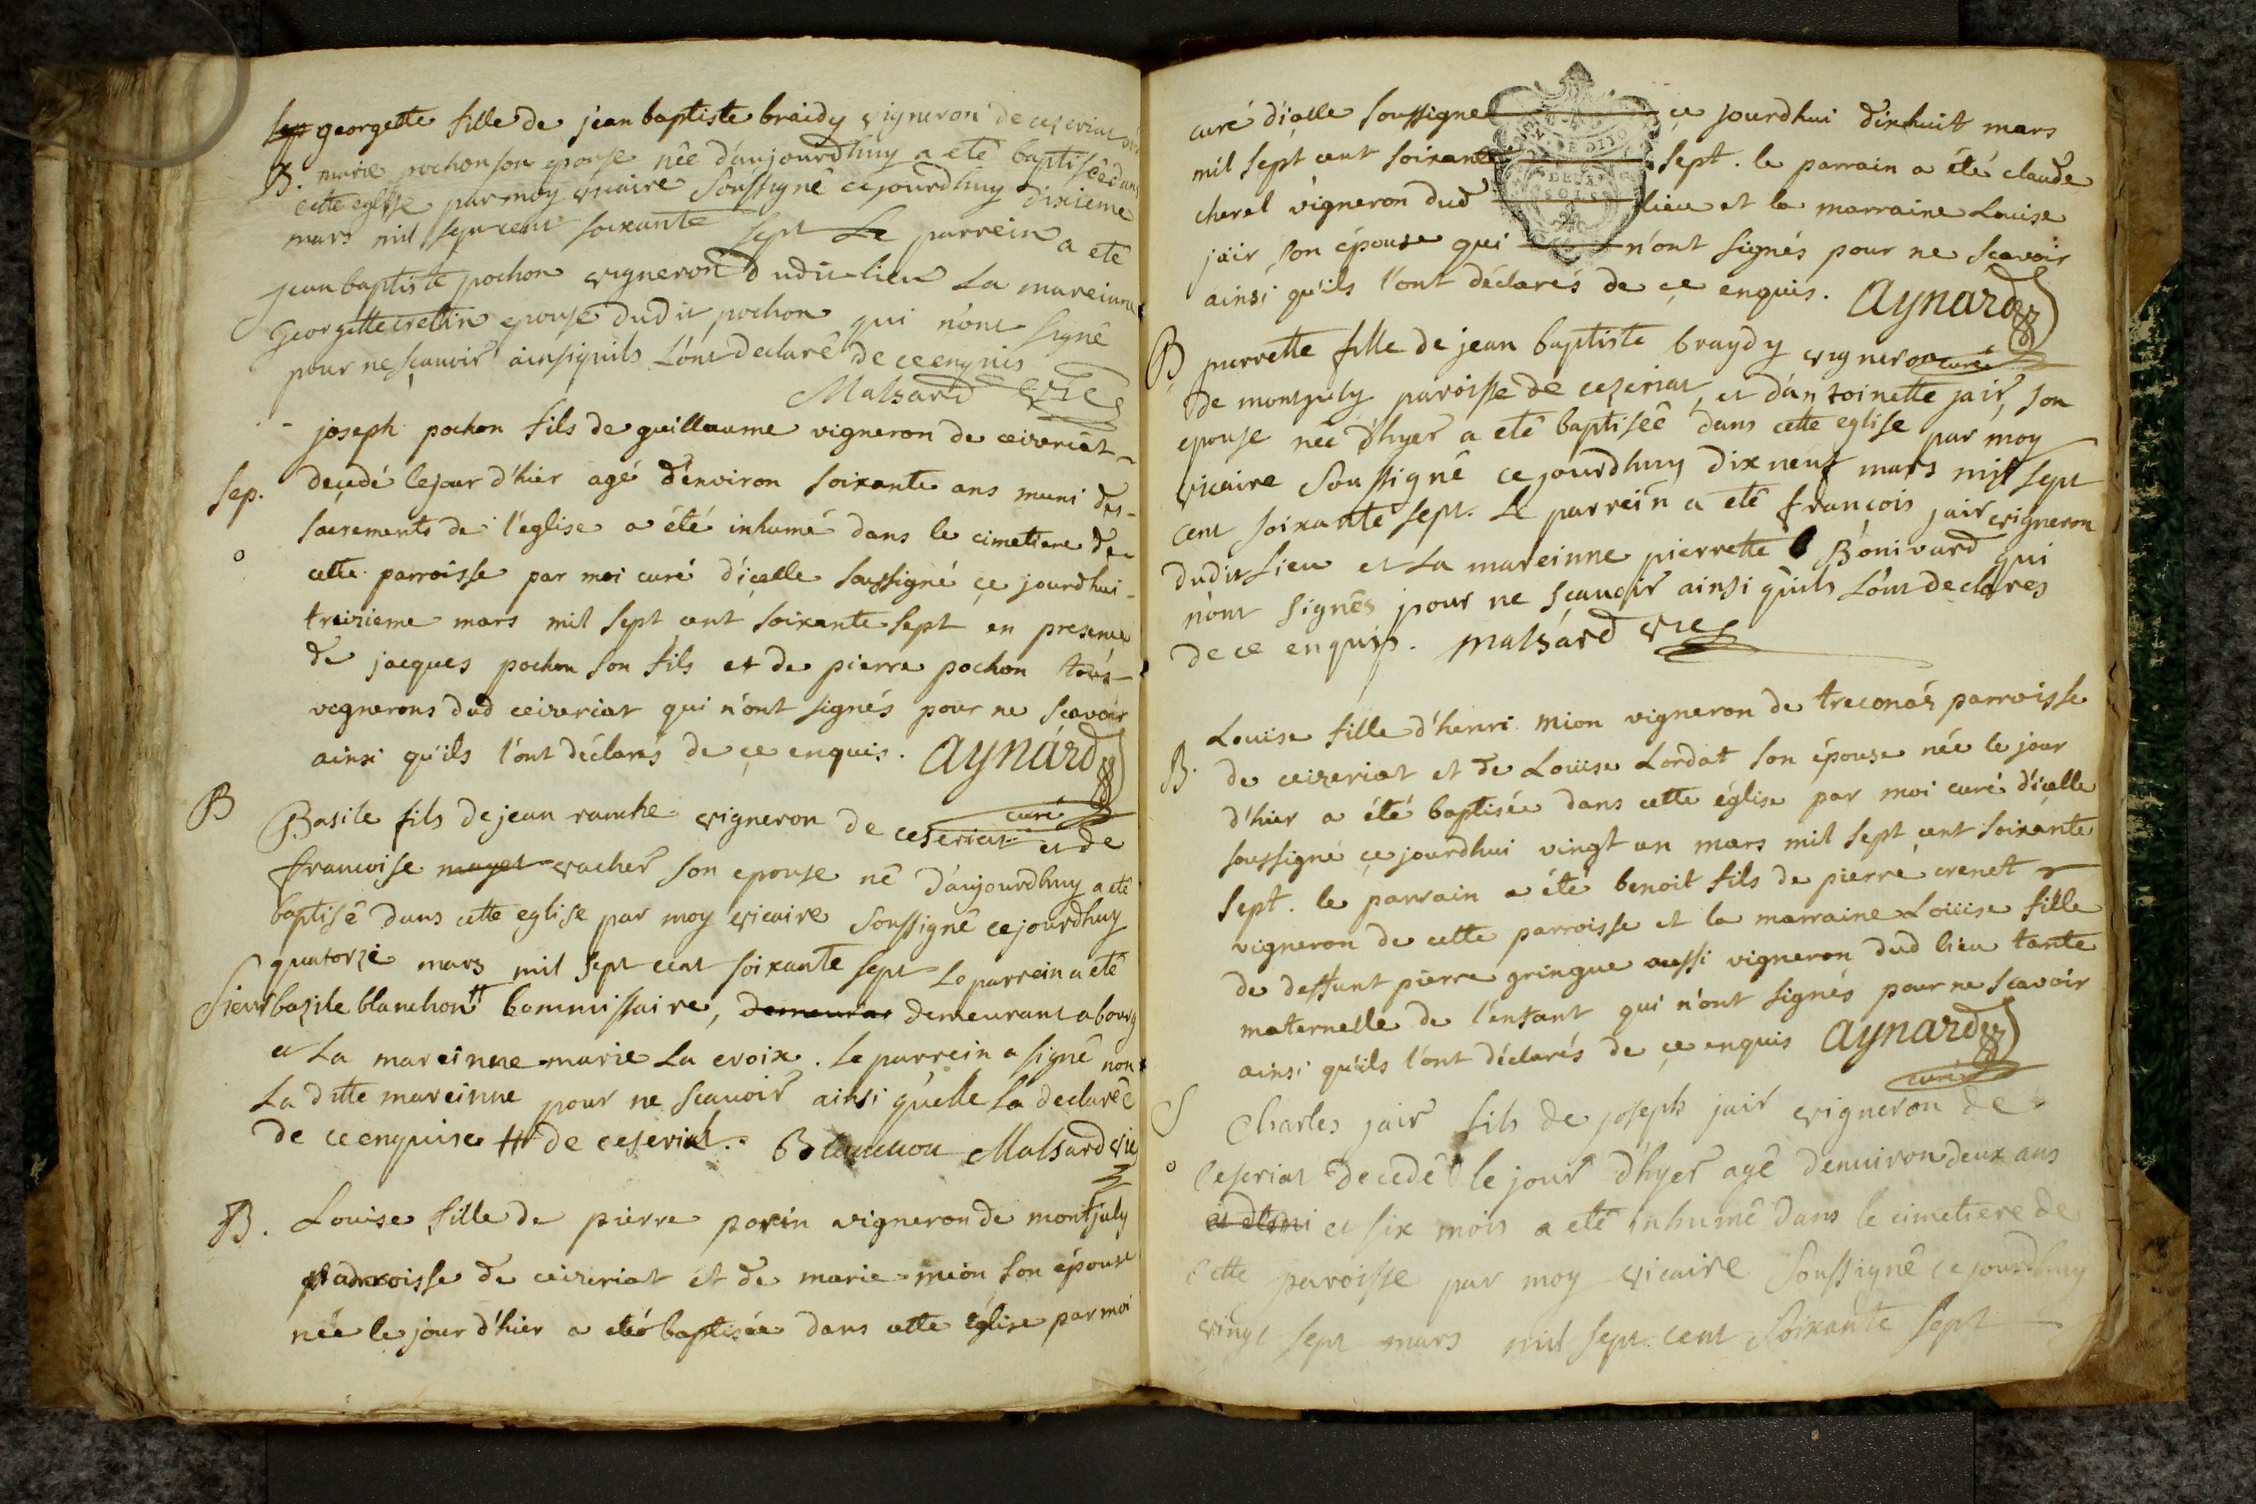 georgette fille de jean baptiste braidy vigneron de ceseriat
B. marie pochon son epouse née d'aujourdhuy a eté baptisée dans
cette eglise par moy vicaire soussigné cejourdhuy dixieme
mars mil sept cent soixante sept Le parrein a eté
jean baptiste pochon vigneron dudit lieu La mareinne
georgette crettin epouse dudit pochon qui n'ont signé
pour ne sçauoir ainsi quils L'ont declaré de ce enquis
Malsard vic
joseph pochon fils de guillaume vigneron de ceizeriat
Sep. deçedé le jour d'hier agé d'environ soixante ans muni des
sacrements de l'eglise a été inhumé dans le cimetiere de
cette parroisse par moi curé d'içelle soussigné çe jourdhui
treizieme mars mil sept cent soixante sept en presence
de jacques pochon son fils et de pierre pochon tous
vignerons dud ceizeriat qui n'ont signés pour ne scavoir
ainsi qu'ils l'ont déclarés de çe enquis. Aynard
curé
B Basile fils de jean ranche vigneron de ceseriat et de
francoise mayet vacher son epouse né d'aujourdhuy a eté
baptisé dans cette eglise par moy vicaire soussigné cejourdhuy
quatorze mars mil sept cent soixante sept Le parrein a eté
Sieur bazile blanchon # commissaire, demeurant demeurant a bourg
et La mareinne marie La croix. Le parrein a signé non
La ditte mareinne pour ne scauoir ainsi qu'elle La declaréé
de ce enquise # de ceseriat. Blanchon Malsard vic
B. Louise fille de pierre porin vigneron de montjuly
parroisse de ceizeriat et de marie mion son épouse
née le jour d'hier a eté baptisée dans cette église par moi
curé d'içelle soussigné çe jourdhui dixhuit mars
mil sept cent soixante sept. le parrain a été claude
cherel vigneron dud lieu et la marraine Louise
jair son épouse qui n'ont signés pour ne scavoir
ainsi qu'ils l'ont déclarés de çe enquis. Aynard
curé
DEUX
SOLS
B pierrette fille de jean baptiste braydy vigneron
de montjuly paroisse de ceseriat, et d'antoinette jair, son
epouse née d'hyer a eté baptiséé dans cette eglise par moy
vicaire soussigné ce jourdhuy dix neuf mars mil sept
cent soixante sept. Le parrein a eté françois jair vigneron
dudit Lieu et La mareinne pierrette Bonivard qui
n'ont signés pour ne sçauoir ainsi quils L'ont declarés
de ce enquis. Malsard vic
Louise fille d'henri mion vigneron de treconas parroisse
B. de ceizeriat et de Louise Lordat son épouse née le jour
d'hier a été baptisée dans cette église par moi curé d'içelle
soussigné çe jourdhui vingt un mars mil sept cent soixante
sept. le parrain a été benoit fils de pierre crenet
vigneron de cette parroisse et la marraine Louise fille
de deffunt pierre gringue aussi vigneron dud lieu tante
maternelle de l'enfant qui n'ont signés pour ne scavoir
ainsi qu'ils l'ont déclarés de çe enquis Aynard
curé
S Charles jair fils de joseph jair vigneron de
ceseriat decedé le jour d'hyer agé denuiron deux ans
et demi et six mois a eté inhumé dans le cimetiere de
cette paroisse par moy vicaire soussigné ce jourdhuy
vingt sept mars mil sept cent soixante sept